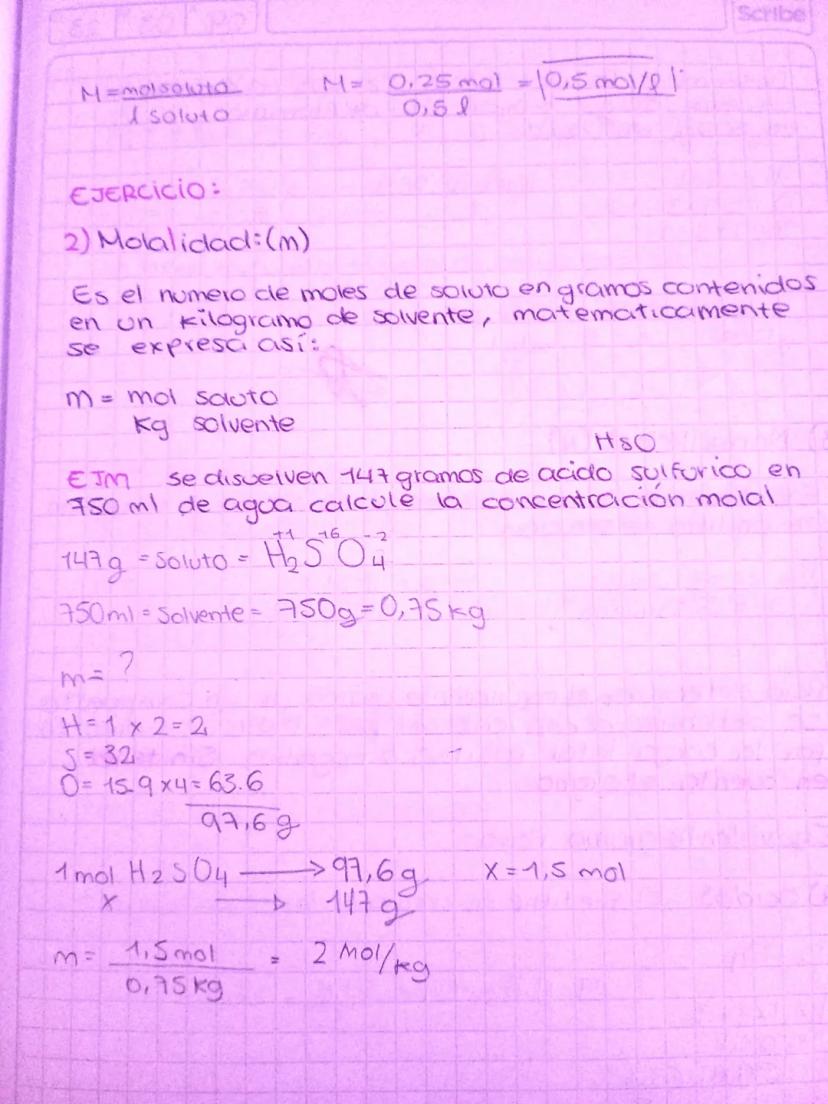 Scribe
M = mol soluto / l soluto M = 0,25 mol / 0,5 l = 0,5 mol/l
EJERCICIO:
2) Molalidad: (m)
Es el numero de moles de soluto en gramos contenidos
en un kilogramo de solvente, matematicamente
se expresa así:
m = mol soluto
Kg solvente
HsO
EJM se disuelven 147 gramos de acido sulfurico en
750 ml de agua calcule la concentración molal
+1 +6 -2
147g = Soluto = H2SO4
750ml = Solvente = 750g = 0,75 kg
m = ?
H = 1 x 2 = 2
S = 32
O = 15.9 x 4 = 63.6
97,6 g
1 mol H2SO4 → 97,6 g X = 1,5 mol
x → 147 g
m = 1,5 mol / 0,75 kg = 2 Mol/kg